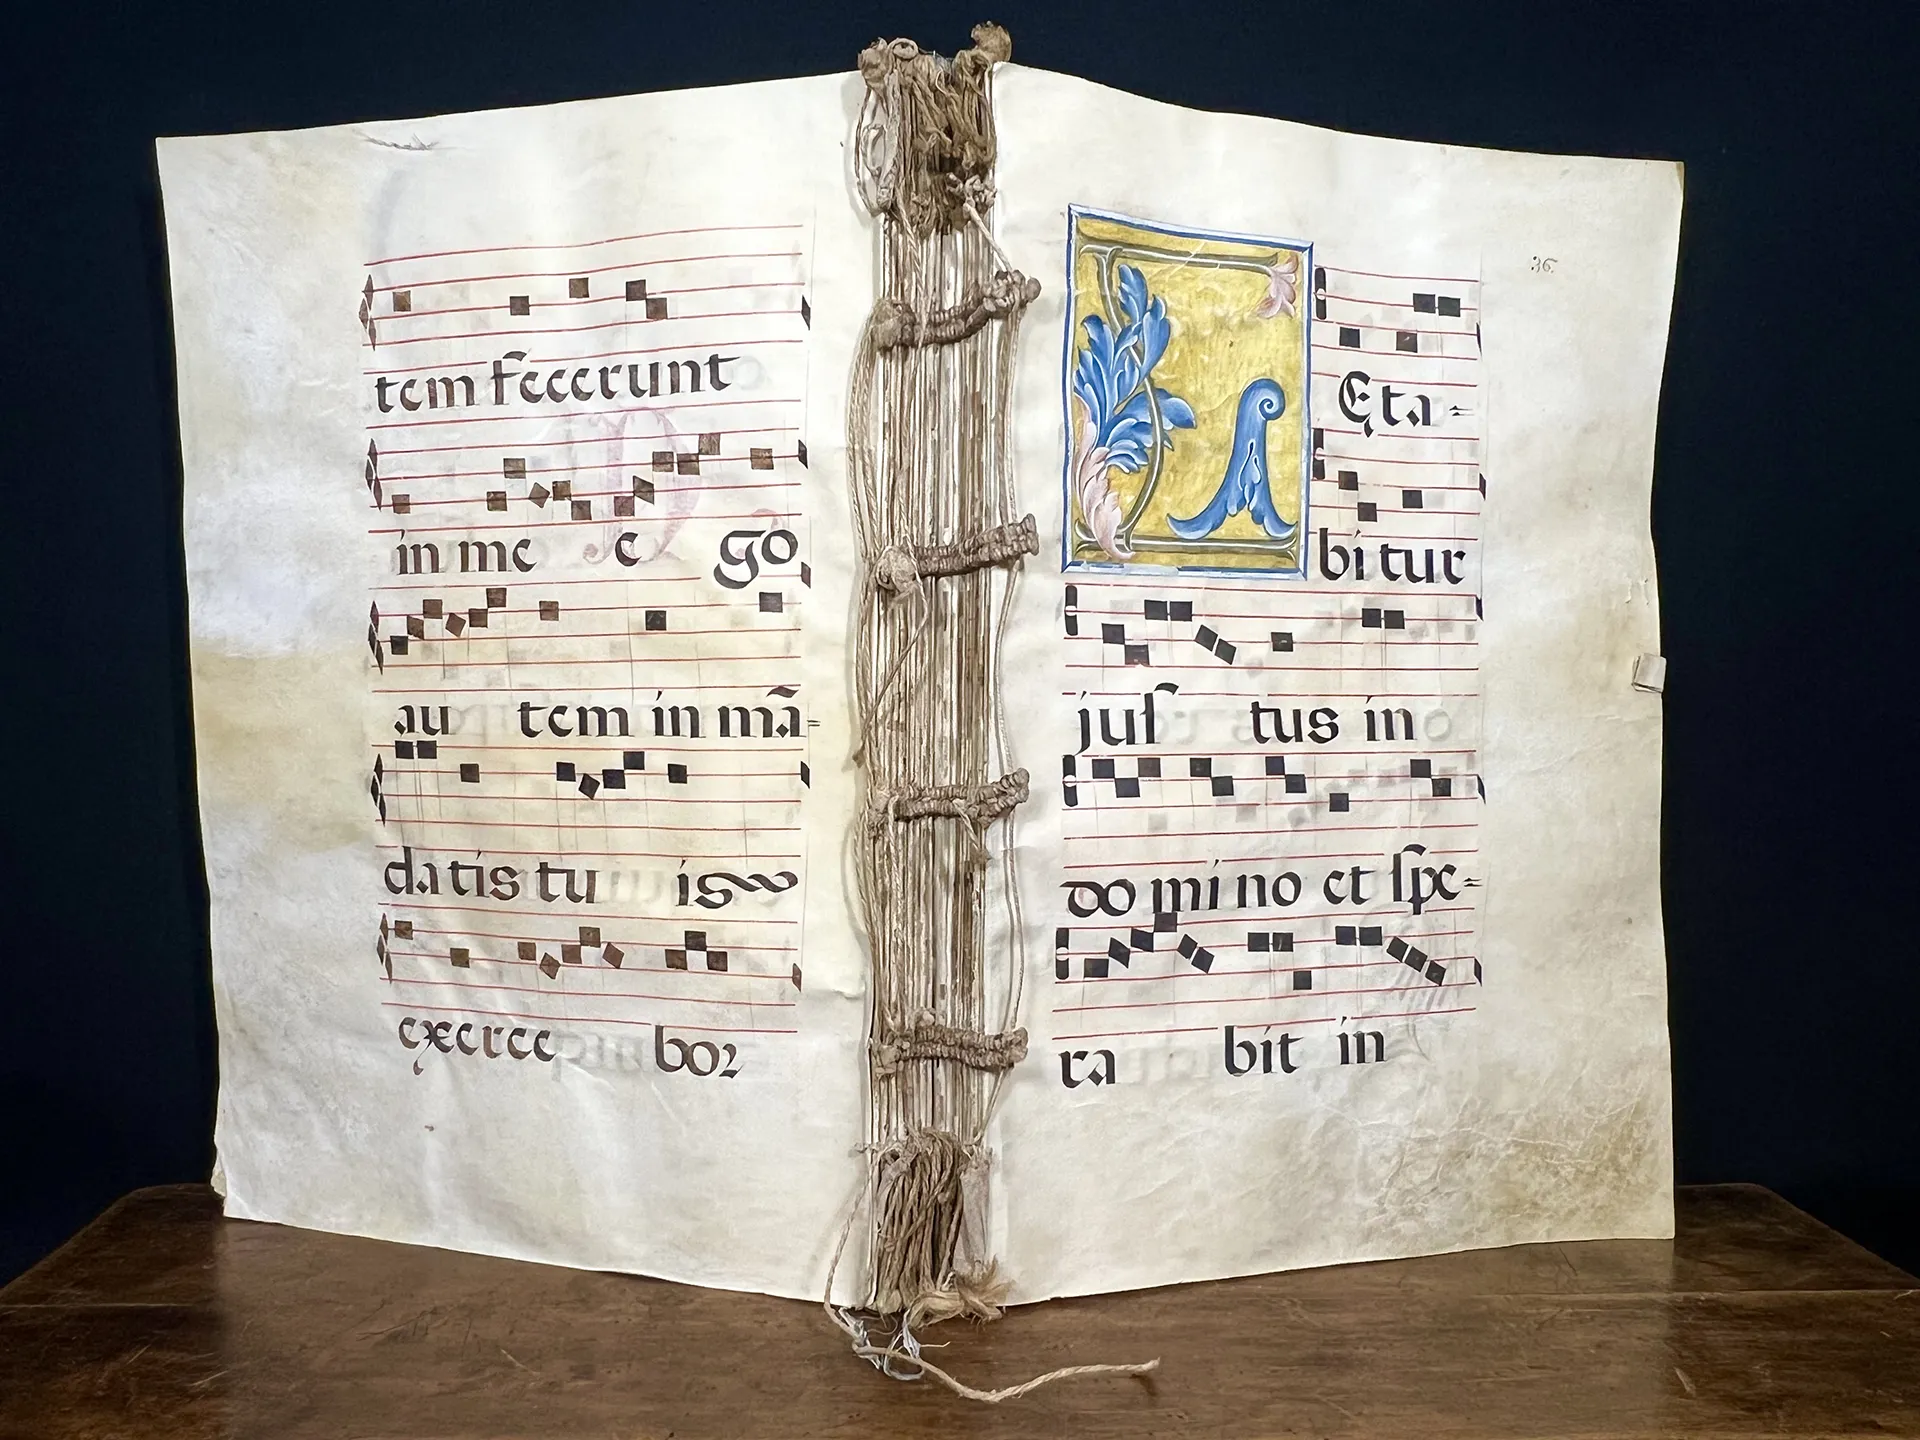 tem fecerunt
in me e go
au tem in mā=
datis tu is
exerce bor
36
L Eta=
bitur
jus tus in
do mi no et spe=
ra bit in